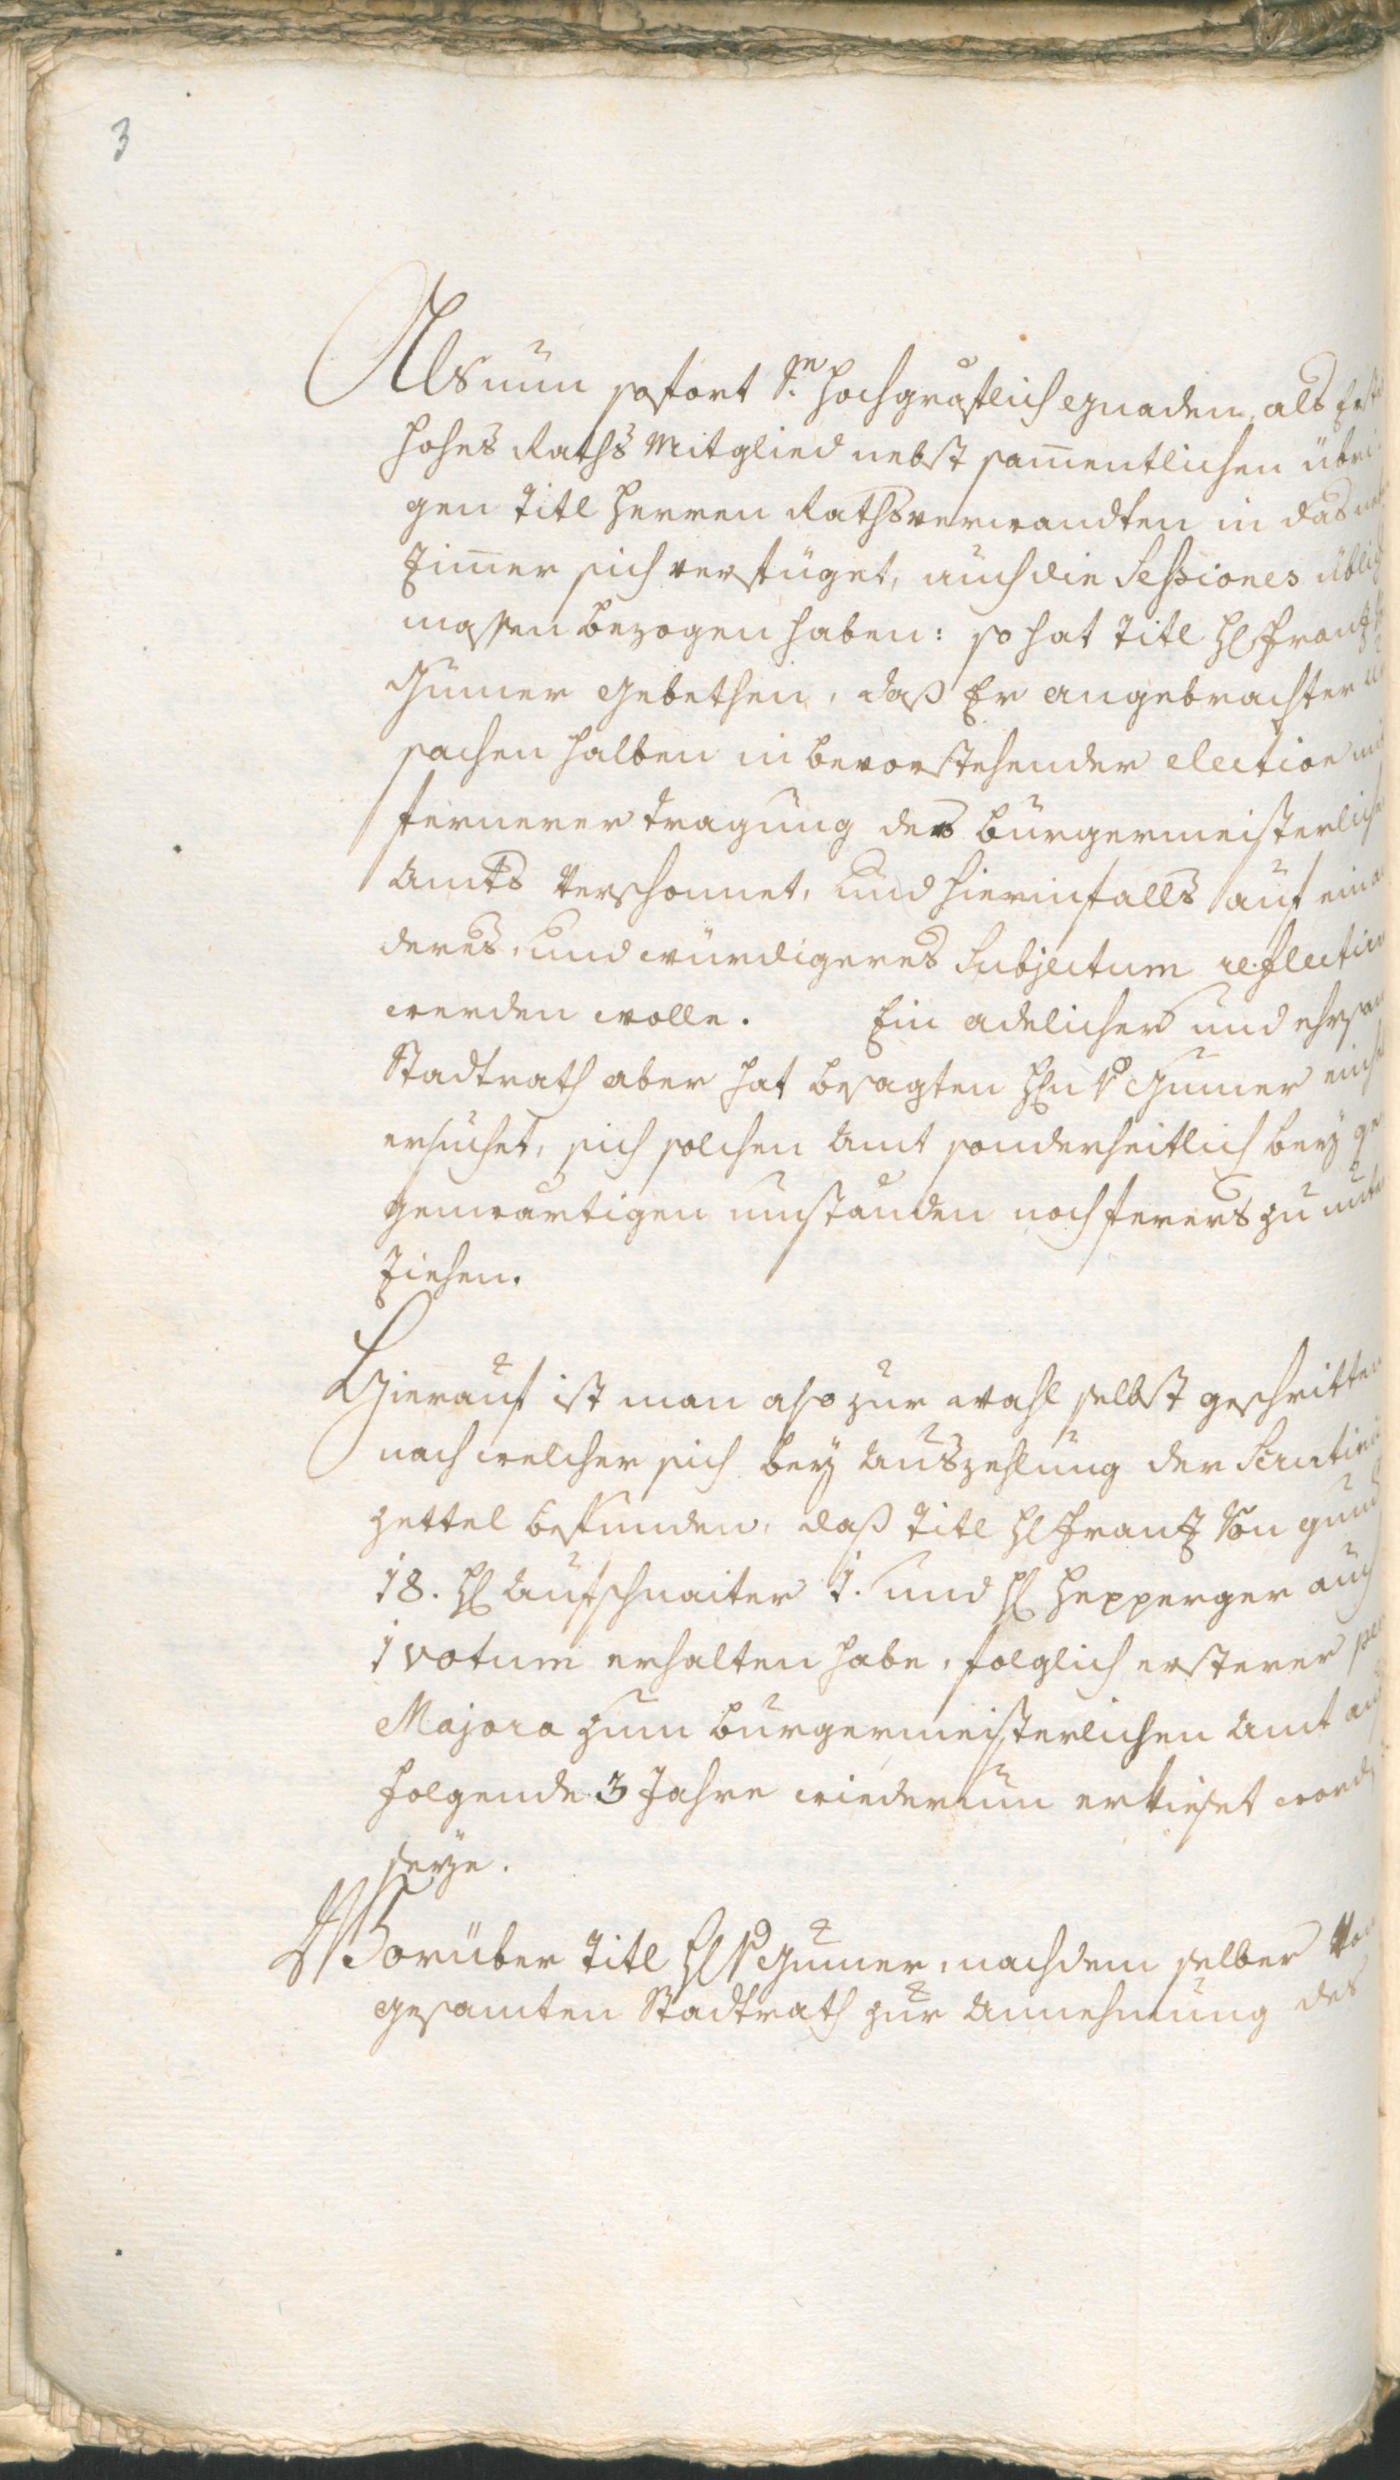 3
Als nun sofort S.ne hochgräflich gnaden, als
hohes Raths Mitglied nebst sam̄entlichen übri-
gen Titl Herren Rathsverwandten in das
Zim̄er sich verfüget, auch die Sessiones üblich
massen bezogen haben: so hat Titl H: Frantz
Gumer gebethen, daß Er angebrachter
sachen halben in bevorstehender election mit
fernerer tragung des burgermeisterlichen
Amts verschonnet, und hierinfalls auf ein an
deres, und würdigeres Subjectum reflectirt
werden wolle. Ein adelicher und ehrsam
Stadtrath aber hat besagten H:n v: Gumer
ersuchet, sich solchen Amt sonderheitlich bey ge
genwärtigen umständen noch ferers zu unter
ziehen.
Hierauf ist man also zur wahl selbst geschritten
nach welcher sich bey Auszehlung der Scrutini
zettel befunden, daß Titl H: Frantz von
18. H: Aufschnaiter 1. und H: Hepperger auch
1 votum erhalten habe, folglich ersterer per
Majora zum burgermeisterlichen Amt auf
folgende 3 Jahre wiederum erkieset word
seye.
Worüber Titl H: v: Gumer, nachdem selber von
gesamten Stadtrath zur Annehmung des